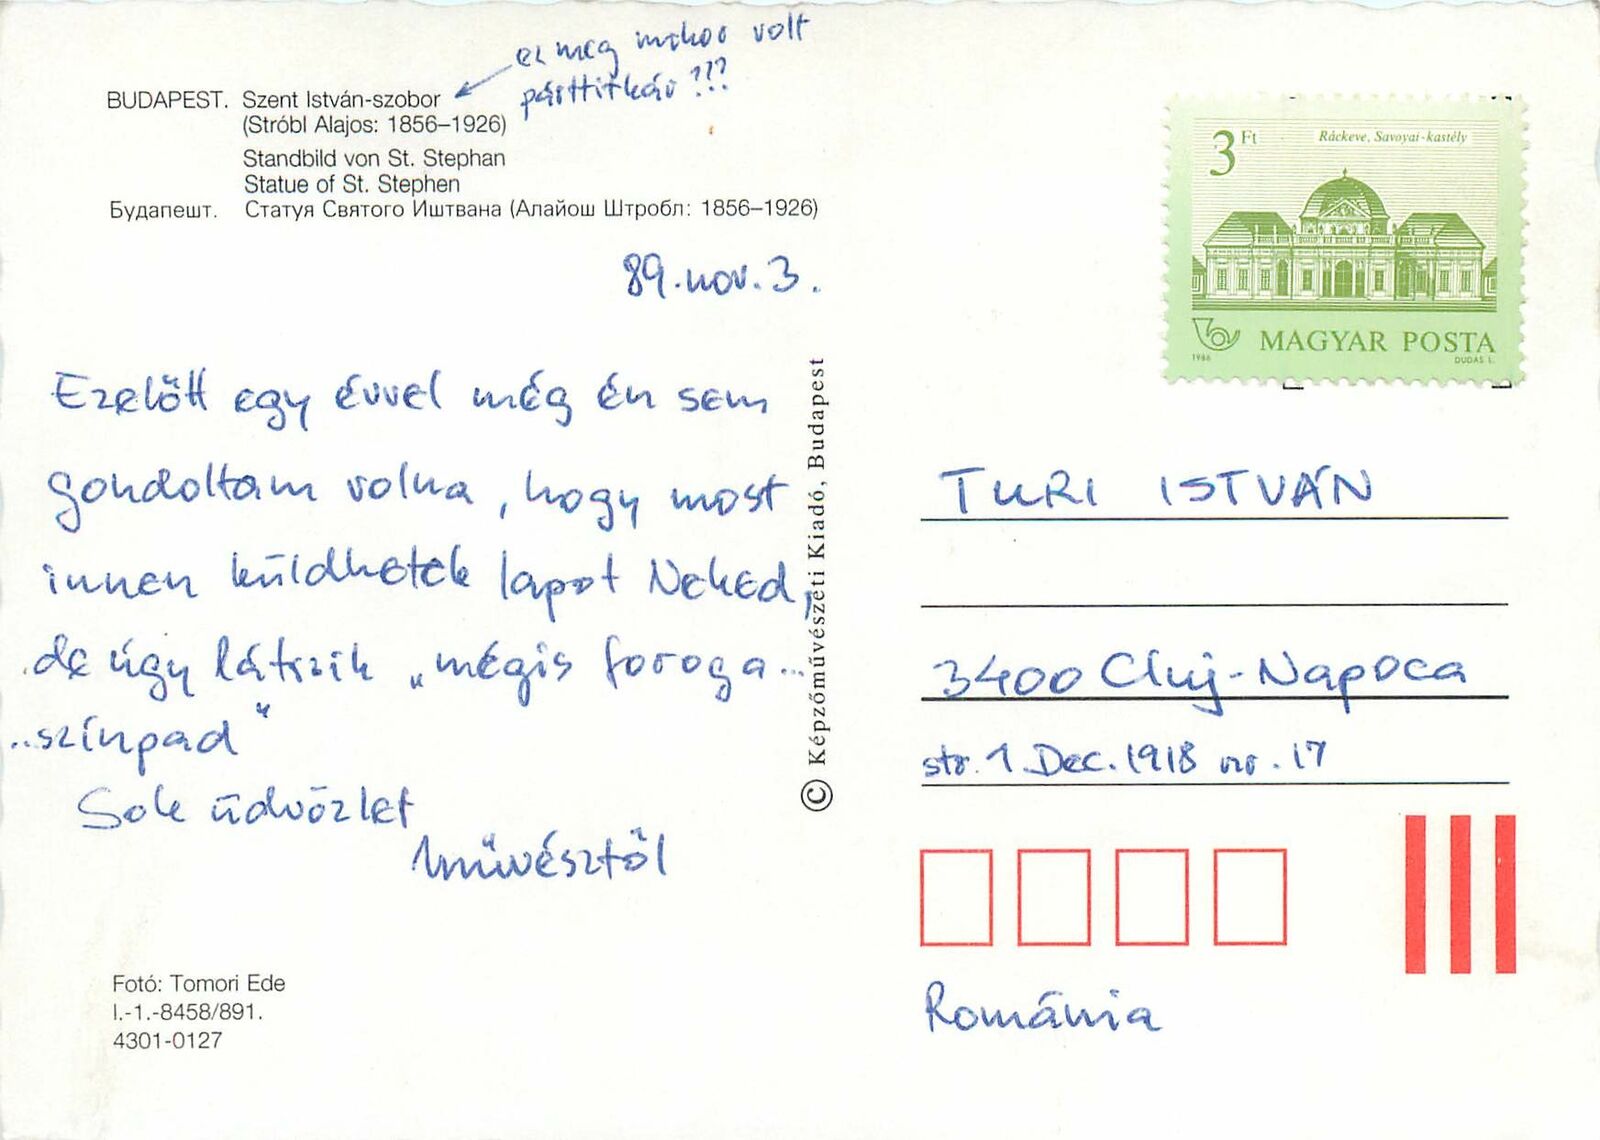 ez meg mikor volt
párttitkár???
BUDAPEST. Szent István-szobor
(Stróbl Alajos: 1856–1926)
Standbild von St. Stephan
Statue of St. Stephen
Будапешт. Статуя Святого Иштвана (Алайош Штробл: 1856–1926)
89. nov. 3.
Ezelőtt egy évvel még én sem
gondoltam volna, hogy most
innen küldhetek lapot Neked,
de úgy látszik „mégis foroga...
..színpad"
Sok üdvözlet
Művésztől
Fotó: Tomori Ede
I.-1.-8458/891.
4301-0127
© Képzőművészeti Kiadó, Budapest
3 Ft Ráckeve, Savoyai-kastély
MAGYAR POSTA
1986 DUDÁS L.
TURI ISTVÁN
3400 Cluj-Napoca
str. 1. Dec. 1918 nr. 17
Románia